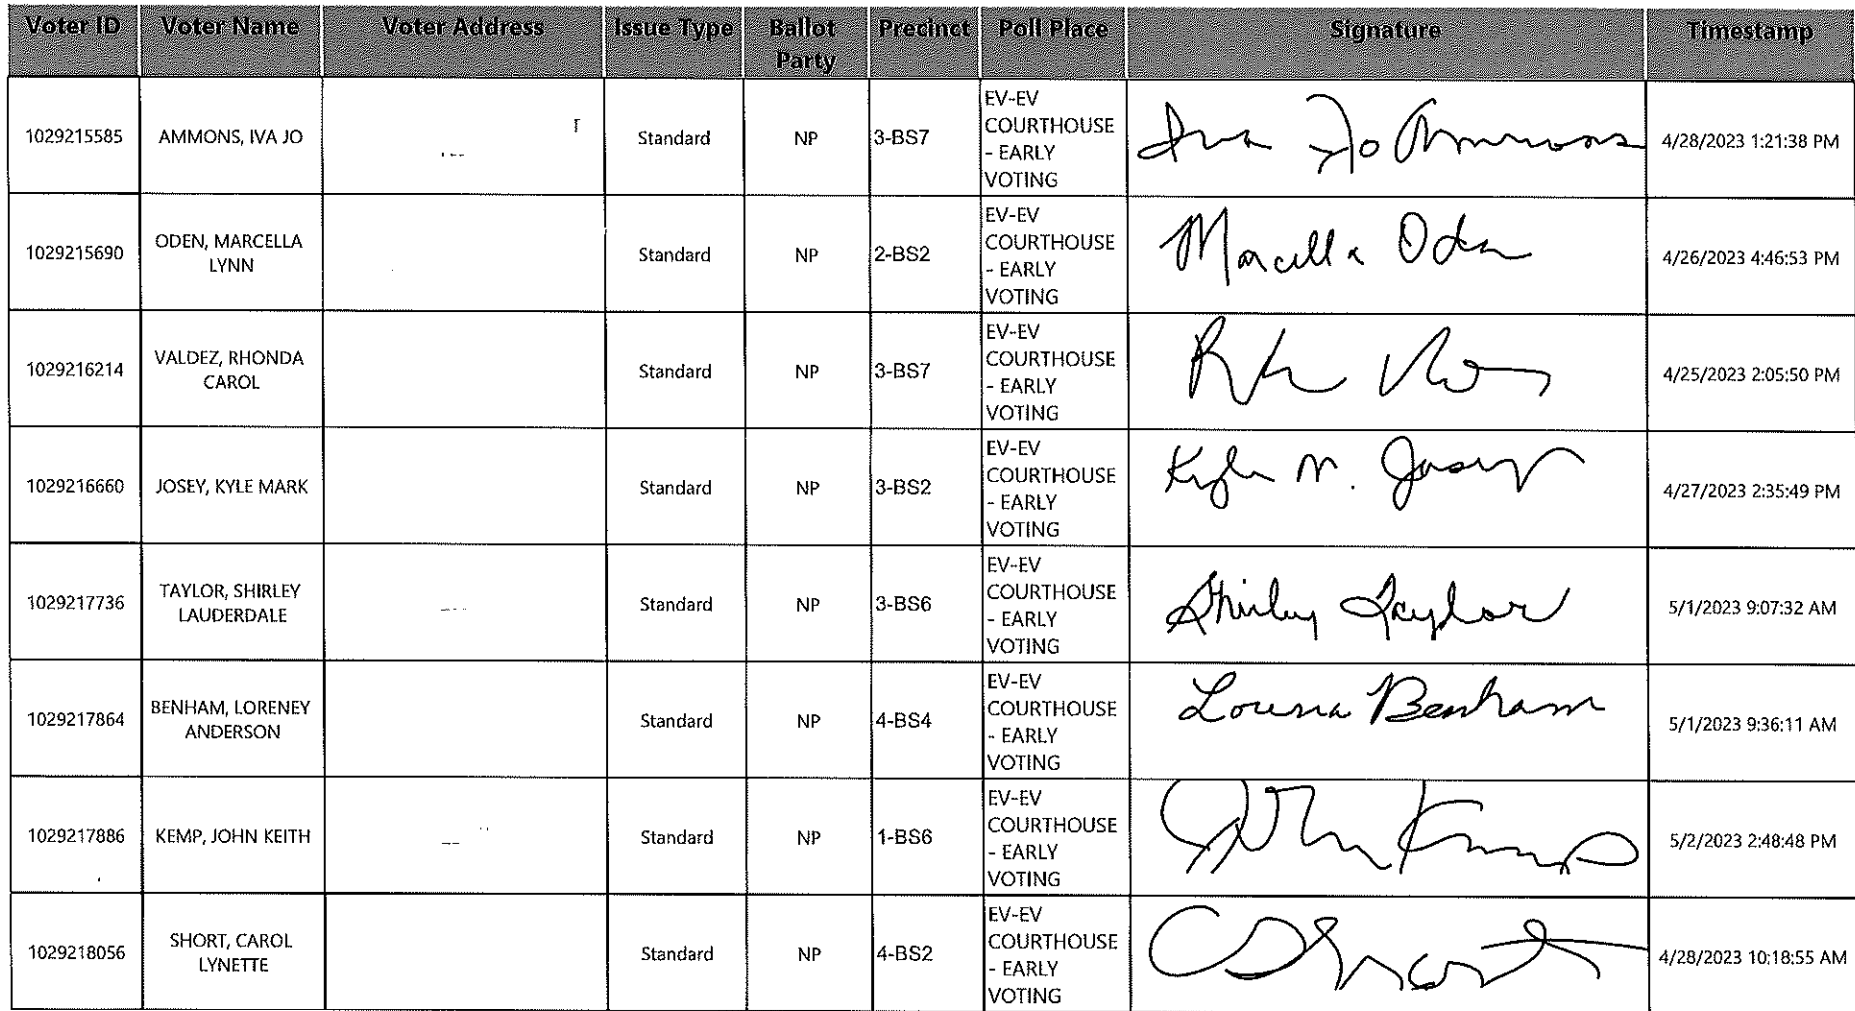 Voter ID Voter Name Voter Address Issue Type Ballot Party Precinct Poll Place Signature Timestamp
1029215585 AMMONS, IVA JO Standard NP 3-BS7 EV-EV COURTHOUSE - EARLY VOTING Iva Jo Ammons 4/28/2023 1:21:38 PM
1029215690 ODEN, MARCELLA LYNN Standard NP 2-BS2 EV-EV COURTHOUSE - EARLY VOTING Marcella Oden 4/26/2023 4:46:53 PM
1029216214 VALDEZ, RHONDA CAROL Standard NP 3-BS7 EV-EV COURTHOUSE - EARLY VOTING 4/25/2023 2:05:50 PM
1029216660 JOSEY, KYLE MARK Standard NP 3-BS2 EV-EV COURTHOUSE - EARLY VOTING Kyle M. Josey 4/27/2023 2:35:49 PM
1029217736 TAYLOR, SHIRLEY LAUDERDALE Standard NP 3-BS6 EV-EV COURTHOUSE - EARLY VOTING Shirley Taylor 5/1/2023 9:07:32 AM
1029217864 BENHAM, LORENEY ANDERSON Standard NP 4-BS4 EV-EV COURTHOUSE - EARLY VOTING Benham 5/1/2023 9:36:11 AM
1029217886 KEMP, JOHN KEITH Standard NP 1-BS6 EV-EV COURTHOUSE - EARLY VOTING John Kemp 5/2/2023 2:48:48 PM
1029218056 SHORT, CAROL LYNETTE Standard NP 4-BS2 EV-EV COURTHOUSE - EARLY VOTING C Short 4/28/2023 10:18:55 AM